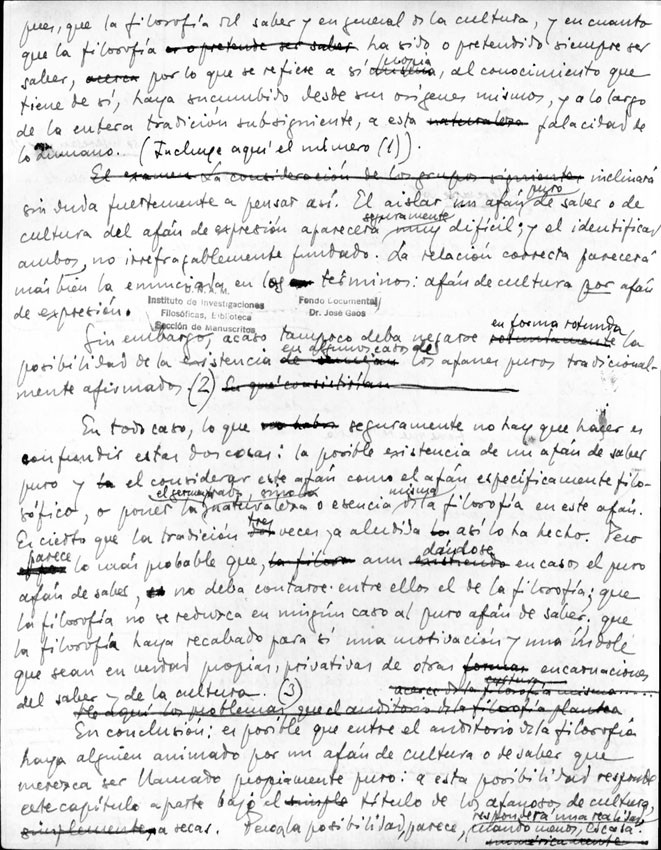 pues, que la filosofía del saber y en general de la cultura, y en cuanto
que la filosofía es o pretende ser saber ha sido o pretendido siempre ser
saber, acerca por lo que se refiere a sí propia misma, al conocimiento que
tiene de sí, haya sucumbido desde sus orígenes mismos, y a lo largo
de la entera tradición subsiguiente, a esta naturaleza falacidad de
lo humano. (Incluye aquí el número (1)).
El examen La consideración de los grupos siguientes inclinará
sin duda fuertemente a pensar así. El aislar un afán puro de saber o de
cultura del afán de expresión aparecerá seguramente muy difícil; y el identificar
ambos, no irrefragablemente fundado. La relación correcta parecerá
más bien la enunciada en los términos: afán de cultura por afán
de expresión.
Instituto de Investigaciones
Filosóficas, Biblioteca
Sección de Manuscritos
Fondo Documental
Dr. José Gaos
Sin embargo, acaso tampoco deba negarse en forma rotunda rotundamente la
posibilidad de la existencia en algunos casos de los afanes puros tradicional-
mente afirmados (2) En qué consistirían
En todo caso, lo que seguramente no hay que hacer es
confundir estas dos cosas: la posible existencia de un afán de saber
puro y la el considerar este afán como el afán específicamente filo-
sófico, o poner la naturaleza o esencia misma de la filosofía en este afán.
Es cierto que la tradición tres veces ya aludida así lo ha hecho. Pero
parece lo más probable que, aun dándose existiendo en casos el puro
afán de saber, no deba contarse entre ellos el de la filosofía; que
la filosofía no se reduzca en ningún caso al puro afán de saber; que
la filosofía haya recabado para sí una motivación y una índole
que sean en verdad propias, privativas de otras formas encarnaciones
del saber y de la cultura. (3) acerca de la filosofía misma
He aquí los problemas que el auditorio de la filosofía plantea
En conclusión: es posible que entre el auditorio de la filosofía
haya alguien animado por un afán de cultura o de saber que
merezca ser llamado propiamente puro: a esta posibilidad responde
este capítulo aparte bajo el simple título de los afanosos de cultura,
simplemente, a secas. Pero a la posibilidad, parece, responderá una realidad, cuando menos, escasa.
numéricamente